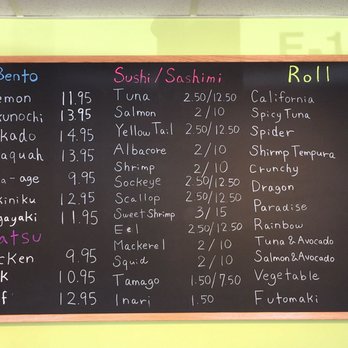 Bento
emon 11.95
kunochi 13.95
kado 14.95
aquah 13.95
a-age 9.95
kiniku 12.95
gayaki 11.95
atsu
icken 9.95
k 10.95
f 12.95
Sushi/Sashimi
Tuna 2.50/12.50
Salmon 2/10
Yellow Tail 2.50/12.50
Albacore 2/10
Shrimp 2/10
Sockeye 2.50/12.50
Scallop 2.50/12.50
Sweet Shrimp 3/15
Eel 2.50/12.50
Mackerel 2/10
Squid 2/10
Tamago 1.50/7.50
Inari 1.50
Roll
California
Spicy Tuna
Spider
Shirmp Tempura
Crunchy
Dragon
Paradise
Rainbow
Tuna & Avocado
Salmon & Avocado
Vegetable
Futomaki